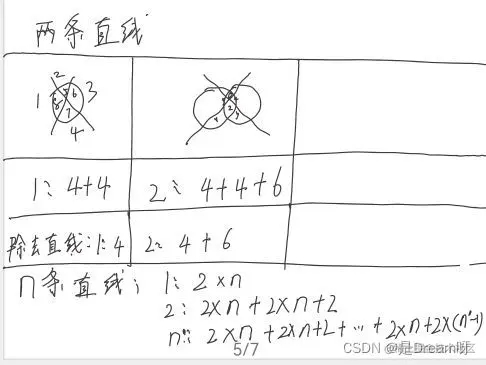 两条直线
1 2 3 4 5 6 7 8
1: 4+4
2: 4+4+6
除去直线:1:4
2: 4+6
n条直线: 1: 2×n
2: 2×n+2×n+2
n: 2×n+2×n+2+…+2×n+2×(n-1)
5/7
CSDN @是Dream呀